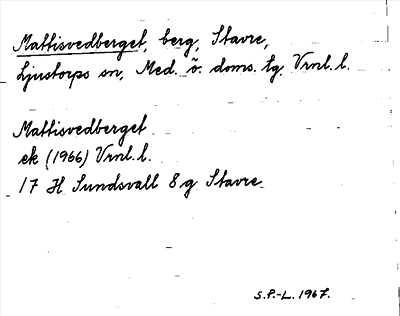 Mattisvedberget, berg, Stavre,
Ljustorps sn, Med. ö. doms. tg. Vrnl. l.
Mattisvedberget
ek (1966) Vrnl. l.
17 H Sundsvall 8 g Stavre
S.P.-L. 1967.